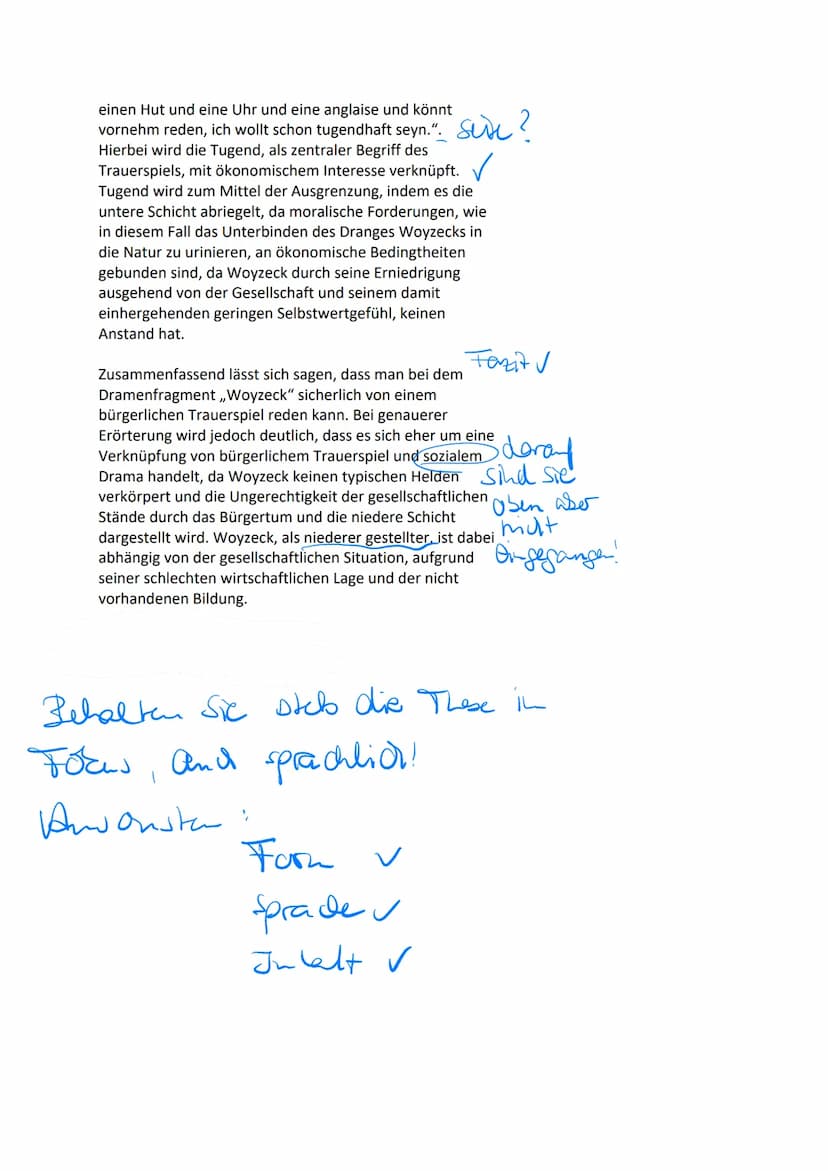 einen Hut und eine Uhr und eine anglaise und könnt
vornehm reden, ich wollt schon tugendhaft seyn.“.
Hierbei wird die Tugend, als zentraler Begriff des
Trauerspiels, mit ökonomischem Interesse verknüpft. ✓
Tugend wird zum Mittel der Ausgrenzung, indem es die
untere Schicht abriegelt, da moralische Forderungen, wie
in diesem Fall das Unterbinden des Dranges Woyzecks in
die Natur zu urinieren, an ökonomische Bedingtheiten
gebunden sind, da Woyzeck durch seine Erniedrigung
ausgehend von der Gesellschaft und seinem damit
einhergehenden geringen Selbstwertgefühl, keinen
Anstand hat.
Fazit ✓
Zusammenfassend lässt sich sagen, dass man bei dem
Dramenfragment „Woyzeck“ sicherlich von einem
bürgerlichen Trauerspiel reden kann. Bei genauerer
Erörterung wird jedoch deutlich, dass es sich eher um eine
Verknüpfung von bürgerlichem Trauerspiel und sozialem
Drama handelt, da Woyzeck keinen typischen Helden
verkörpert und die Ungerechtigkeit der gesellschaftlichen
Stände durch das Bürgertum und die niedere Schicht
dargestellt wird. Woyzeck, als niederer gestellter, ist dabei
abhängig von der gesellschaftlichen Situation, aufgrund
seiner schlechten wirtschaftlichen Lage und der nicht
vorhandenen Bildung.
darauf
sind Sie
oben aber
nicht
eingegangen!
Behalten Sie stets die These im
Fokus, auch sprachlich!
Ansonsten:
Form ✓
Sprache ✓
Inhalt ✓